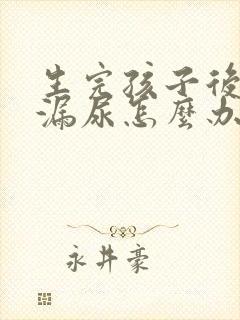 生完孩子後
漏尿怎麼办
永井豪